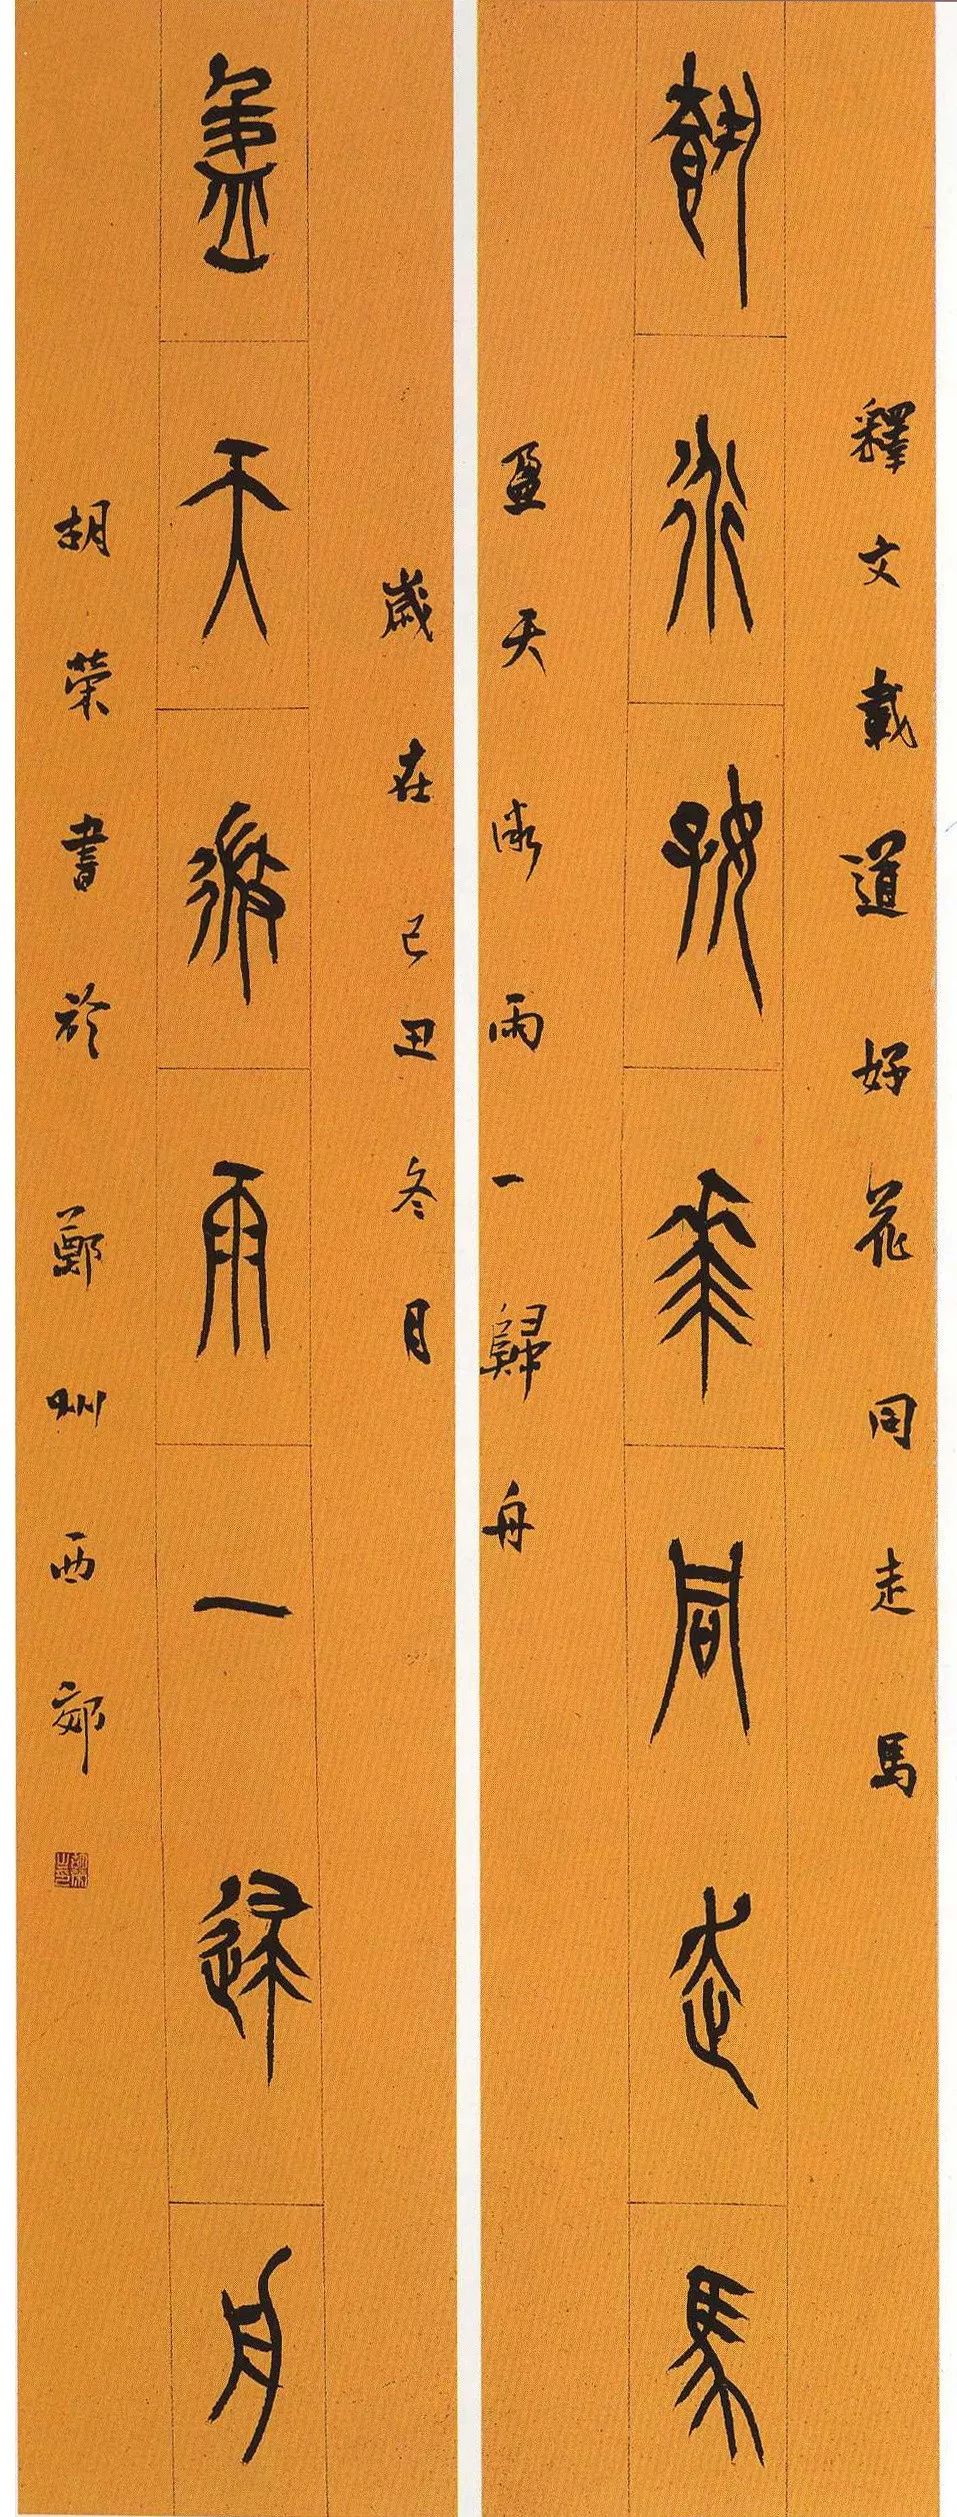 釋文載道好花同走馬
載道好花同走馬
盈天微雨一歸舟
歲在己丑冬月
盈天微雨一歸舟
胡榮書於鄭州西郊